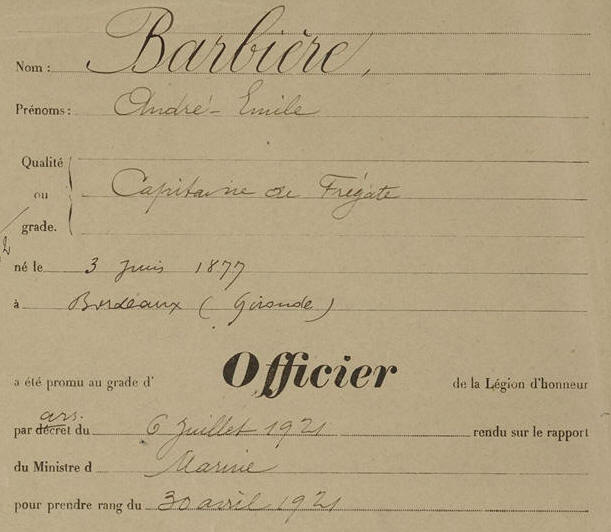 Nom : Barbière,
Prénoms : André-Emile
Qualité
ou Capitaine de Frégate
grade.
2
né le 3 Juin 1877
à Bordeaux (Gironde)
a été promu au grade d' Officier de la Légion d'honneur
ars.
par décret du 6 Juillet 1921 rendu sur le rapport
du Ministre d Marine
pour prendre rang du 30 avril 1921